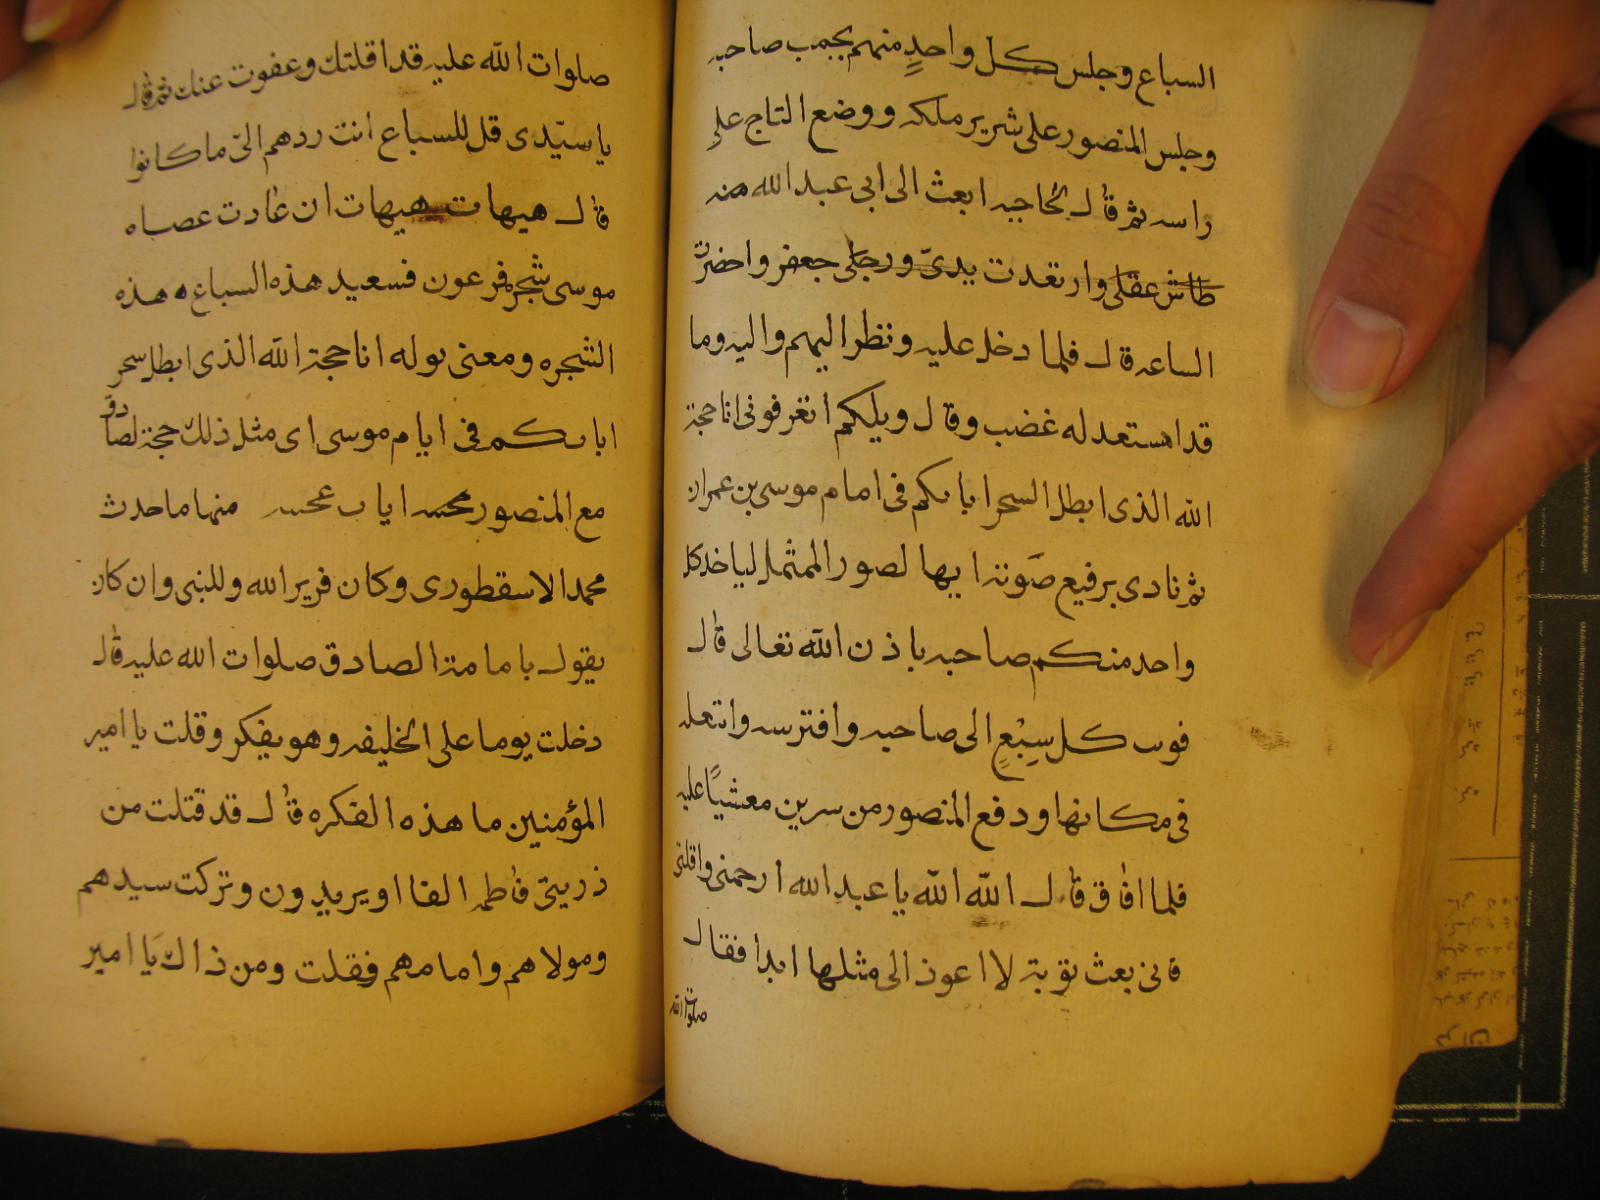 السباع وجلس كل واحدٍ منهم بجمب صاحبه
وجلس المنصور على شرير ملكه ووضع التاج على
راسه ثم قال لحاجبه ابعث الى ابى عبد الله
طاش عقلى وارتعدت يدىّ ورجلى جعفر واحضرت
الساعه قال فلما دخل عليه ونظر اليهم واليه وما
قد استعد له غضب وقال ويلكم اتعرفونى انا حجة
الله الذى ابطل السحر ابايكم فى امام موسى بن عمران
ثم نادى برفيع صَوته ايها لصور الممثمل لياخد كل
واحد منكم صاحبه باذن الله تعالى قال
فوب كل سبعٍ الى صاحبه وافترسه وابتعله
فى مكانها ودفع المنصور من سرين معشيًا عليه
فلما افاق قال الله الله يا عبد الله ارحمنى واقلنى
فانى بعث توبة لا اعوذ الى مثلها ابدا فقال
صلوات الله
صلوات الله عليه قد اقلتك وعفوت عنك ثم قال
يا سيّدى قل للسباع انت ردهم الىّ ما كانوا
قال هيهات هيهات ان عادت عصاه
موسى شجره فرعون فسعيد هذه السباع هذه
الشجره ومعنى بوله انا حجة الله الذى ابطل سحر
ابابكم فى ايام موسى اى مثل ذلك حجة لصادق
مع المنصور ايات عجيبه منها ما حدث
محمد الاسقطورى وكان فرير الله وللنبى وان كان
يقول بامامة الصادق صلوات الله عليه قال
دخلت يوما على الخليفه وهو يفكر وقلت يا امير
المؤمنين ما هذه الفكره قال قد قتلت من
ذريتى فاطمه الفا او يريدون وتركت سيدهم
ومولاهم وامامهم فقلت ومن ذاك يَا امير